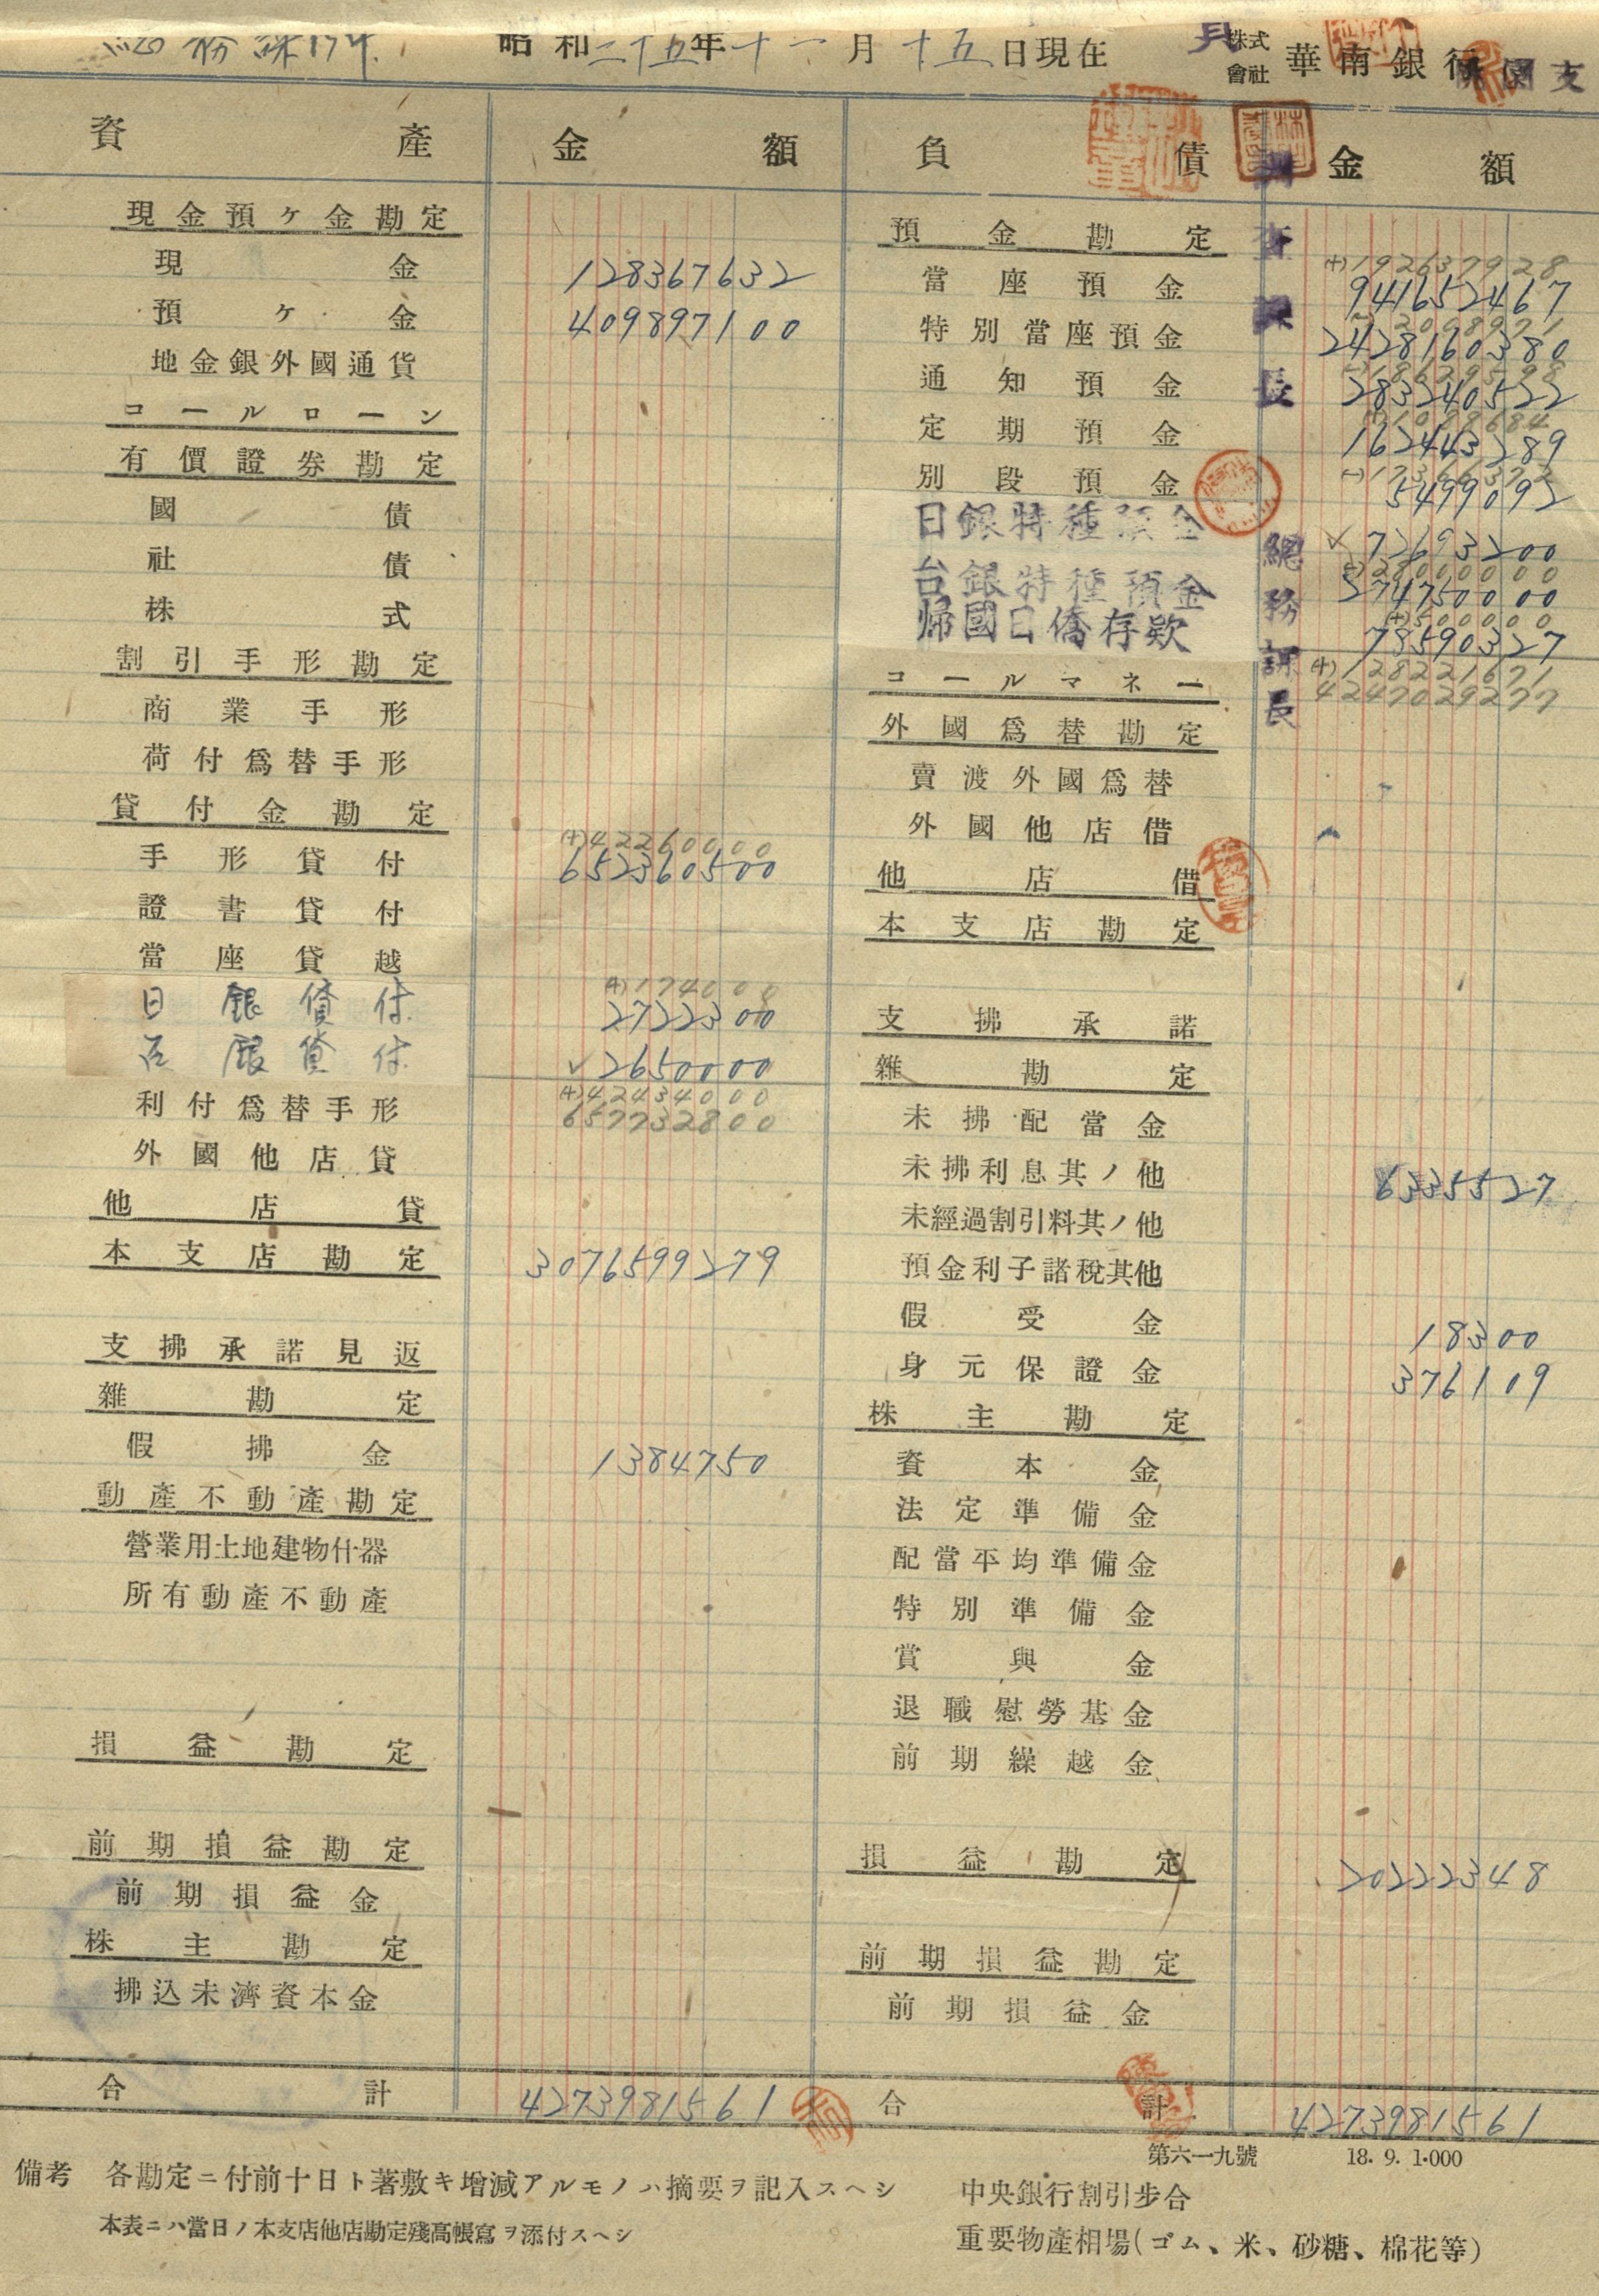 昭和三十五年十一月十五日現在
株式會社 華南銀行 桃園支
資產 金額 負債 金額
現金預ケ金勘定
現金 128367632
預ケ金 409897100
地金銀外國通貨
コールローン
有價證券勘定
國債
社債
株式
割引手形勘定
商業手形
荷付爲替手形
貸付金勘定
(+)42260000
手形貸付 652360500
證書貸付
當座貸越
(+)174000
日銀貸付 2722300
台銀貸付 ✓2650000
(+)42434000
利付爲替手形 657732800
外國他店貸
他店貸
本支店勘定 3076599279
支拂承諾見返
雜勘定
假拂金 1384750
動產不動產勘定
營業用土地建物什器
所有動產不動產
損益勘定
前期損益勘定
前期損益金
株主勘定
拂込未濟資本金
合計 4273981561
預金勘定
(+)192637928
當座預金 941652467
(-)2008971
特別當座預金 2428160380
(-)18629598
通知預金 283240522
(+)1088684
定期預金 162443289
(-)17366372
別段預金 5499092
日銀特種預金 ✓72693200
(-)28000000
台銀特種預金 274750000
(+)500000
帰國日僑存欵 78590327
(+)128221671
コールマネー 4247029277
外國爲替勘定
賣渡外國爲替
外國他店借
他店借
本支店勘定
支拂承諾
雜勘定
未拂配當金
未拂利息其ノ他 6335527
未經過割引料其ノ他
預金利子諸稅其他
假受金 18300
身元保證金 376109
株主勘定
資本金
法定準備金
配當平均準備金
特別準備金
賞與金
退職慰勞基金
前期繰越金
損益勘定 20222348
前期損益勘定
前期損益金
合計 4273981561
調查課長
總務課長
第六一九號 18.9.1.000
備考 各勘定ニ付前十日ト著敷キ增減アルモノハ摘要ヲ記入スヘシ
本表ニハ當日ノ本支店他店勘定殘高帳寫ヲ添付スヘシ
中央銀行割引步合
重要物產相場(ゴム、米、砂糖、棉花等)